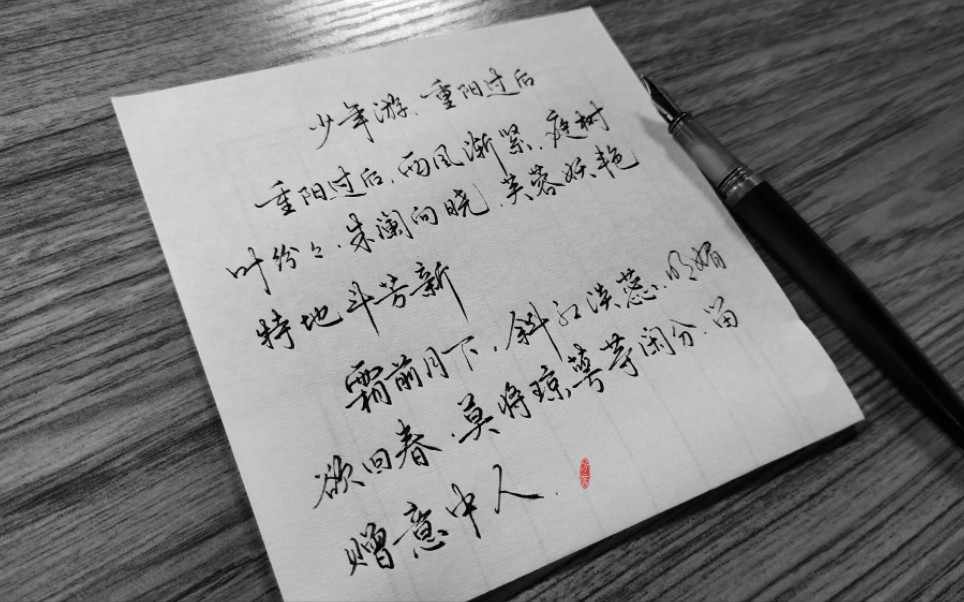 少年游.重阳过后
重阳过后.西风渐紧.庭树
叶纷々.朱阑向晓.芙蓉妖艳
特地斗芳新
霜前月下.斜红淡蕊.明媚
欲回春.莫将琼萼等闲分.留
赠意中人.